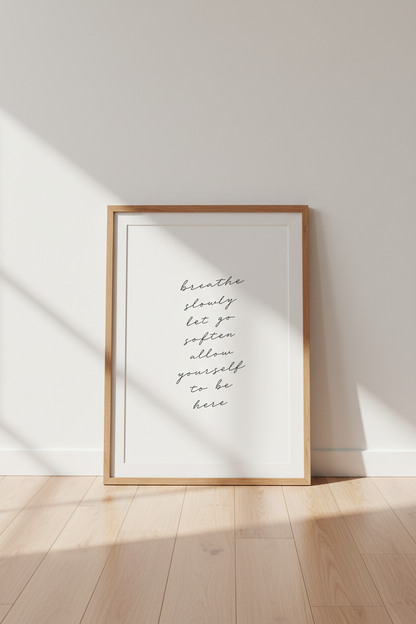 breathe
slowly
let go
soften
allow
yourself
to be
here